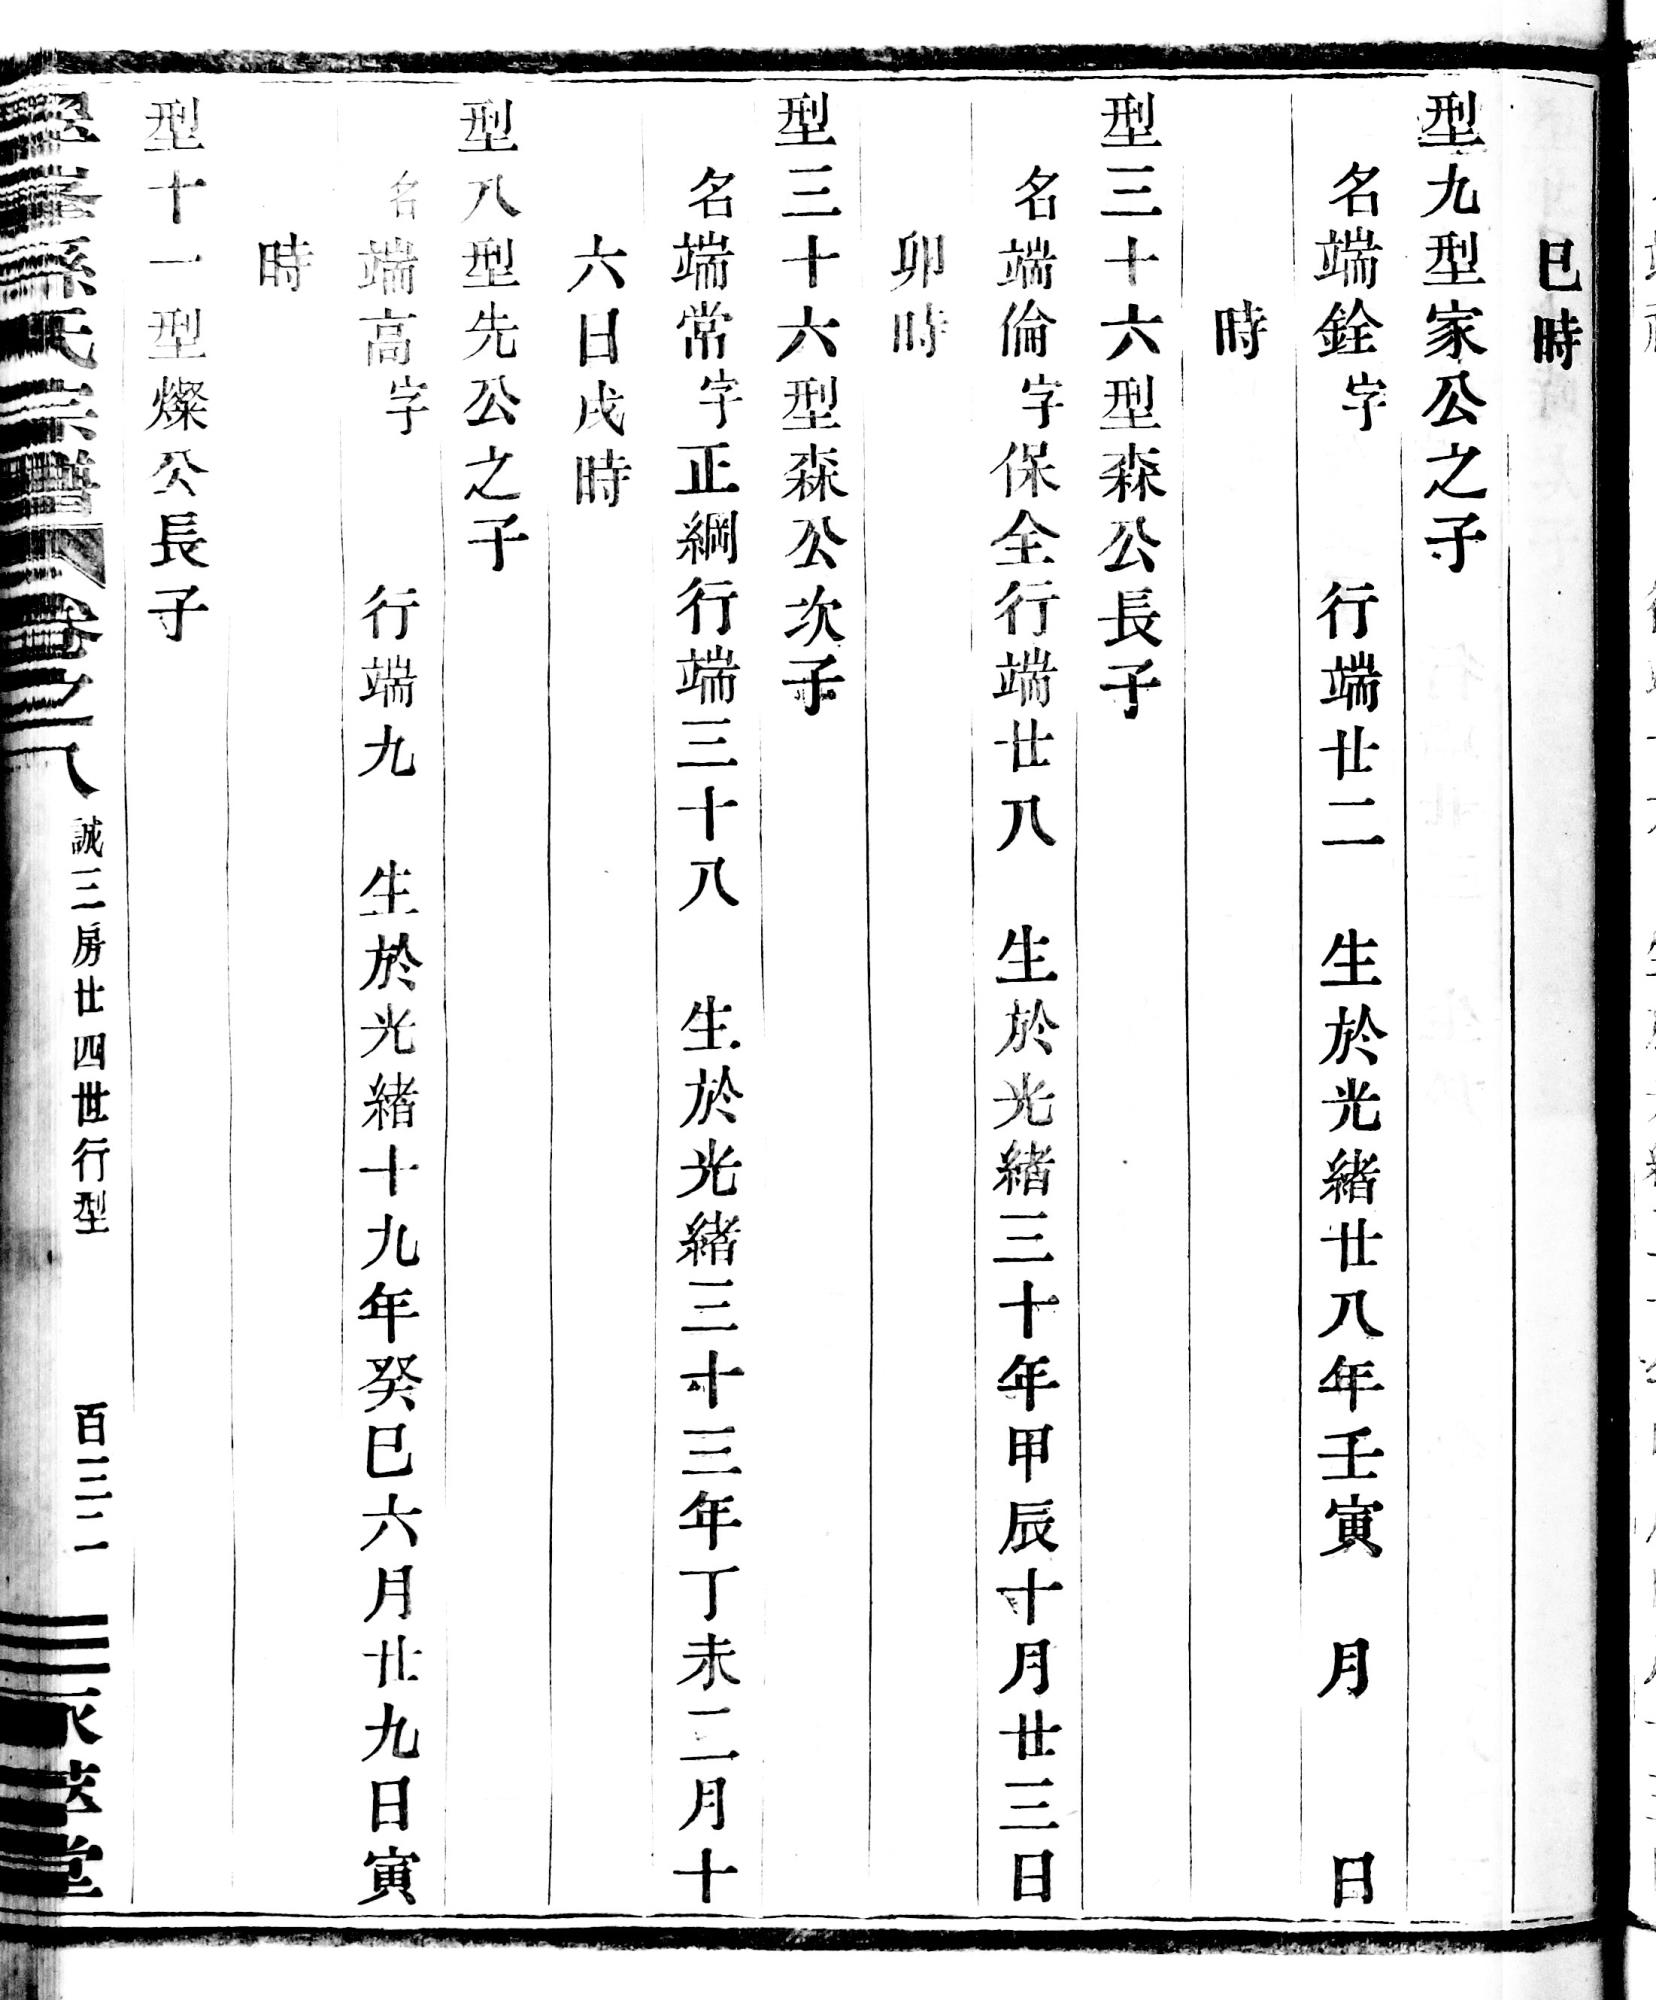 巳時
型九型家公之子
名端銓字　行端廿二　生於光緒廿八年壬寅　月　日
時
型三十六型森公長子
名端倫字保全行端廿八　生於光緒三十年甲辰十月廿三日
卯時
型三十六型森公次子
名端常字正綱行端三十八　生於光緒三十三年丁未二月十
六日戌時
型八型先公之子
名端高字　行端九　生於光緒十九年癸巳六月廿九日寅
時
型十一型燦公長子
孫氏宗譜　卷之八　誠三房廿四世行型　百三二　堂